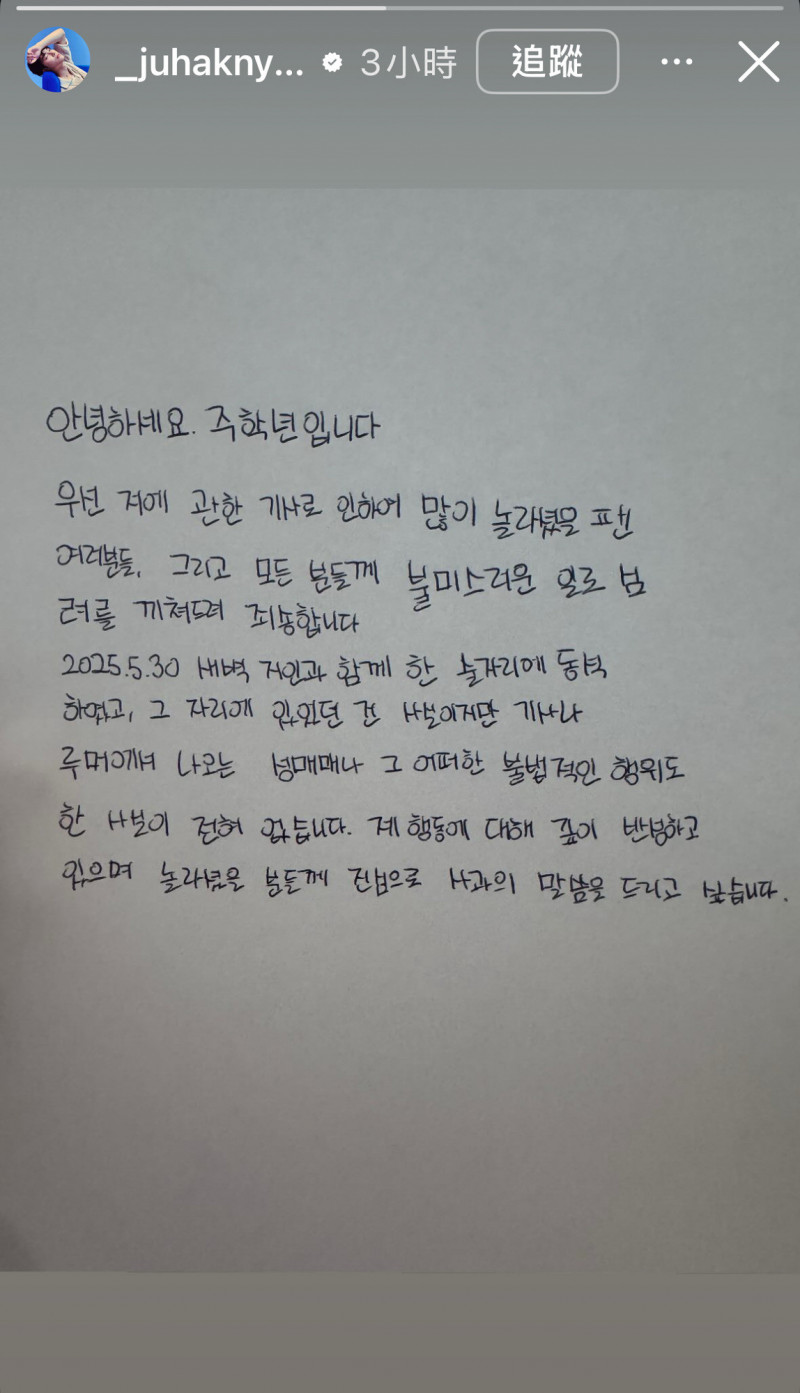 _juhakny... 3小時 追蹤
안녕하세요. 주학년입니다
우선 저에 관한 기사로 인하여 많이 놀라셨을 팬
여러분들, 그리고 모든 분들께 불미스러운 일로 심
려를 끼쳐드려 죄송합니다
2025.5.30 새벽 지인과 함께 한 술자리에 동석
하였고, 그 자리에 있었던 건 사실이지만 기사나
루머에서 나오는 성매매나 그 어떠한 불법적인 행위도
한 사실이 전혀 없습니다. 제 행동에 대해 깊이 반성하고
있으며 놀라셨을 분들께 진심으로 사과의 말씀을 드리고 싶습니다.